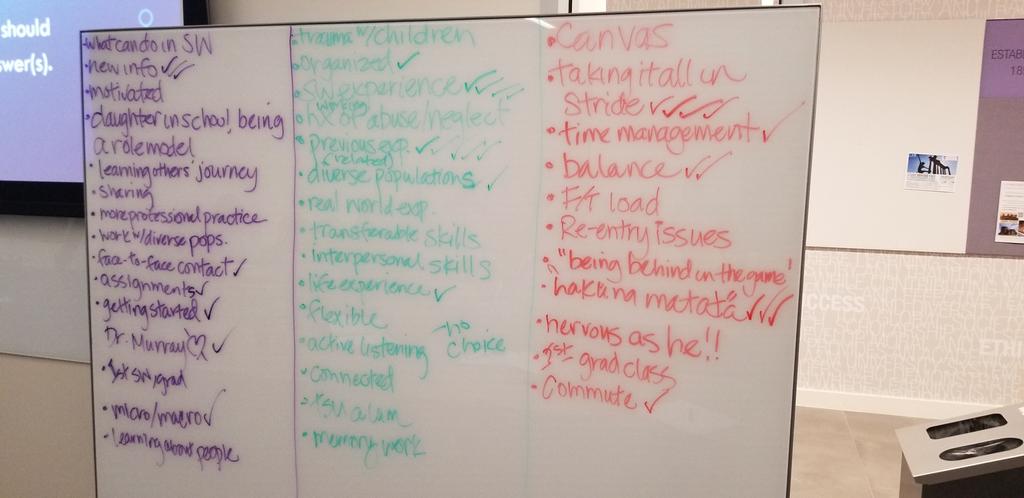 should
swer(s).
• what can do in SW
• new info ✓✓
• motivated
• daughter in school, being
a role model
• learning others' journey
• sharing
• more professional practice
• work w/ diverse pops.
• face-to-face contact ✓
• assignments ✓
• getting started ✓
Dr. Murray ♡ ✓
• 1st SW/grad
• micro/macro ✓
• learning about people
• trauma w/ children
• organized ✓
• SW experience ✓✓✓✓
(working)
• hx of abuse/neglect
• previous exp. ✓✓✓✓✓
(related)
• diverse populations ✓
• real world exp.
• transferable skills
• interpersonal skills
• life experience ✓
• flexible
• active listening
no
choice
• connected
• TSU alum
• memory work
• Canvas
• taking it all in
stride ✓✓✓✓
• time management ✓
• balance ✓✓
• F/T load
• Re-entry issues
• "being behind in the game"
• hakuna matata ✓✓✓
• nervous as he!!
• 1st grad class
• Commute ✓
ESTAB
18
CCESS